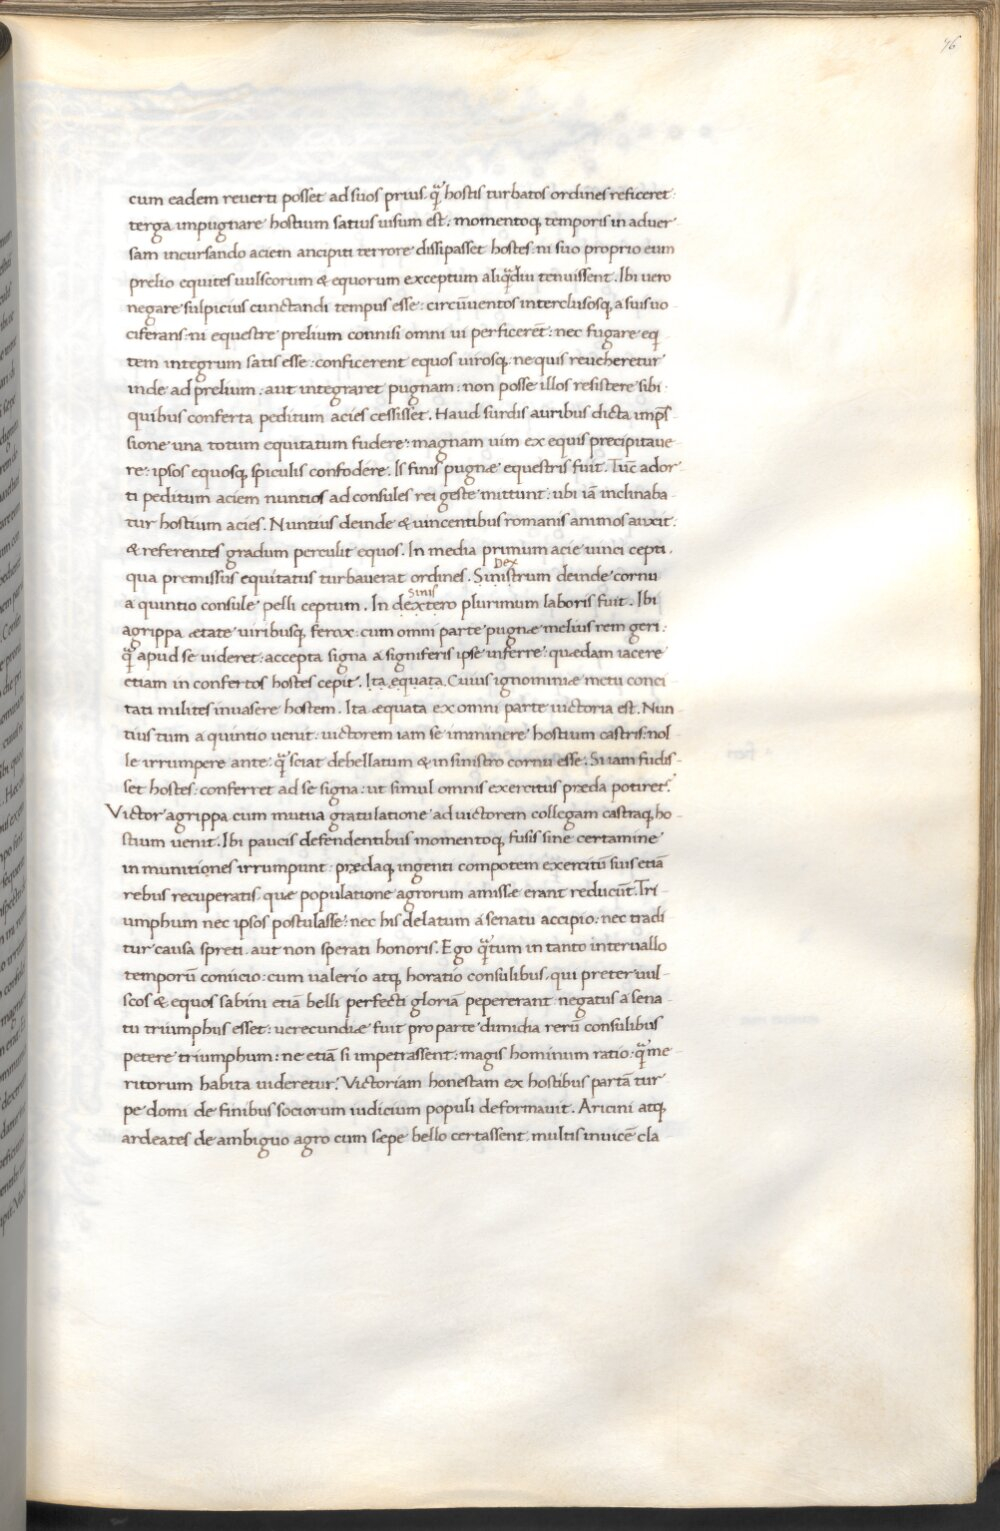 76
cum eadem reuerti posset ad suos prius. q̃ hostis turbatos ordines reficeret:
terga impugnare hostium satius uisum est. momentoq; temporis in aduer
sam incursando aciem ancipiti terrore dissipasset hostes: ni suo proprio eum
prelio equites uulscorum & equorum exceptum aliq̃diu tenuissent. Ibi uero
negare sulpicius cunctandi tempus esse: circũuentos interclusosq; a suis uo
ciferans: ni equestre prelium connisi omni ui perficerẽt: nec fugare eq
tem integrum satis esse: conficerent equos uirosq; ne quis reueheretur
inde ad prelium: aut integraret pugnam: non posse illos resistere sibi.
quibus conferta peditum acies cessisset. Haud surdis auribus dicta. imp̃s
sione una totum equitatum fudere: magnam uim ex equis precipitaue
re: ipsos equosq; spiculis confodere. Is finis pugnæ equestris fuit. Tũc ador
ti peditum aciem nuntios ad consules rei geste mittunt: ubi iã inclinaba
tur hostium acies. Nuntius deinde & uincentibus romanis animos auxit:
& referentes gradum perculit equos. In media primum acie uinci cepti.
Dex
qua premissus equitatus turbauerat ordines. Sinistrum deinde cornu
sinis
a quintio consule pelli ceptum. In dextero plurimum laboris fuit. Ibi
agrippa ætate uiribusq; ferox: cum omni parte pugnæ melius rem geri:
q̃ apud se uideret: accepta signa a signiferis ipse inferre: quædam iacere
etiam in confertos hostes cepit. Ita equata. Cuius ignominiæ metu conci
tati milites inuasere hostem. Ita æquata ex omni parte uictoria est. Nun
tius tum a quintio uenit: uictorem iam se imminere hostium castris: nol
le irrumpere ante q̃ sciat debellatum & in sinistro cornu esse. Si iam fudis
set hostes: conferret ad se signa: ut simul omnis exercitus præda potiret᷑.
Victor agrippa cum mutua gratulatione ad uictorem collegam castraq; ho
stium uenit. Ibi paucis defendentibus momentoq; fusis sine certamine
in munitiones irrumpunt: prædaq; ingenti compotem exercitũ suis etiã
rebus recuperatis. quæ populatione agrorum amissæ erant reducũt. Tri
umphum nec ipsos postulasse: nec his delatum a senatu accipio: nec tradi
tur causa spreti. aut non sperati honoris. Ego q̃tum in tanto interuallo
temporũ coniicio: cum ualerio atq; horatio consulibus. qui preter uul
scos & equos sabini etiã belli perfecti gloriã pepererant negatus a sena
tu triumphus esset: uerecundiæ fuit pro parte dimidia rerũ consulibus
petere triumphum: ne etiã si impetrassent: magis hominum ratio: q̃ me
ritorum habita uideretur. Victoriam honestam ex hostibus partã tur
pe domi de finibus sociorum iudicium populi deformauit. Aricini atq;
ardeates de ambiguo agro cum sæpe bello certassent. multis inuicẽ cla